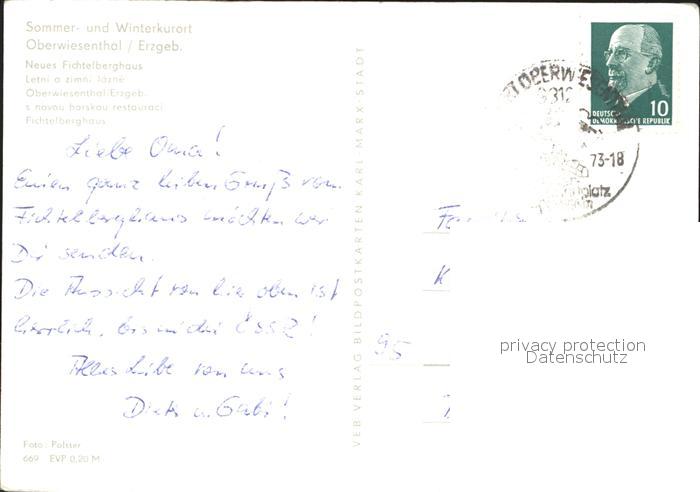 Sommer- und Winterkurort
Oberwiesenthal / Erzgeb.
Neues Fichtelberghaus
Letní a zimní lázně
Oberwiesenthal/Erzgeb.
s novou horskou restaurací
Fichtelberghaus
Liebe Oma!
Einen ganz lieben Gruß vom
Fichtelberghaus möchten wir
Dir senden.
Die Aussicht von hier oben ist
herrlich, bis in die ČSSR!
Alles Liebe von uns
u. Gabi!
Foto: Polster
669 EVP 0,20 M
VEB VERLAG BILDPOSTKARTEN KARL-MARX-STADT
10
DEUTSCHE
DEMOKRATISCHE REPUBLIK
OBERWIESENTHAL
9312
73-18
platz
95
K
privacy protection
Datenschutz